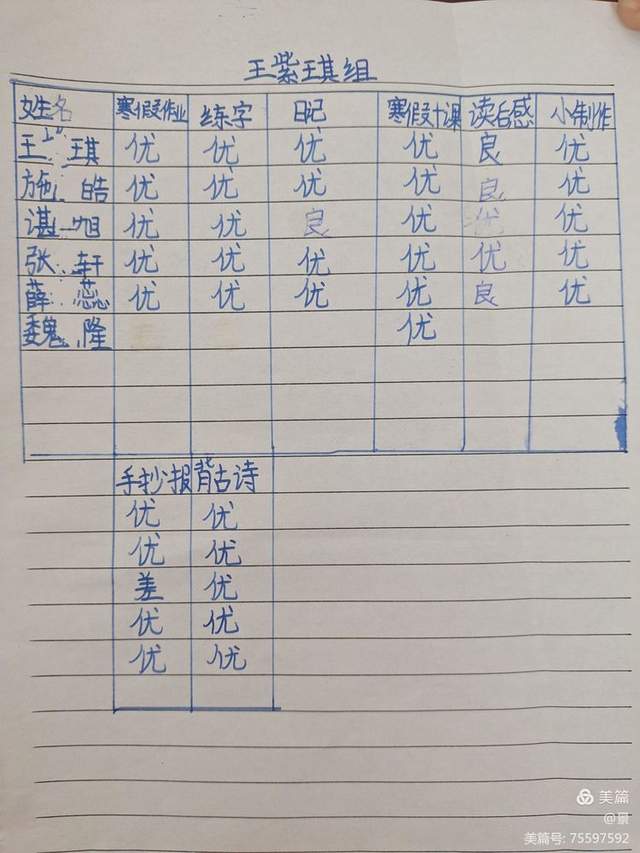 王紫琪组
姓名 寒假作业 练字 日记 寒假计课 读后感 小制作
王 琪 优 优 优 优 良 优
施 皓 优 优 优 优 良 优
谌 旭 优 优 良 优 优
张 轩 优 优 优 优 优 优
薛 蕊 优 优 优 优 良 优
魏 隆 优
手抄报 背古诗
优 优
优 优
差 优
优 优
优 优
美篇
@景
美篇号: 75597592